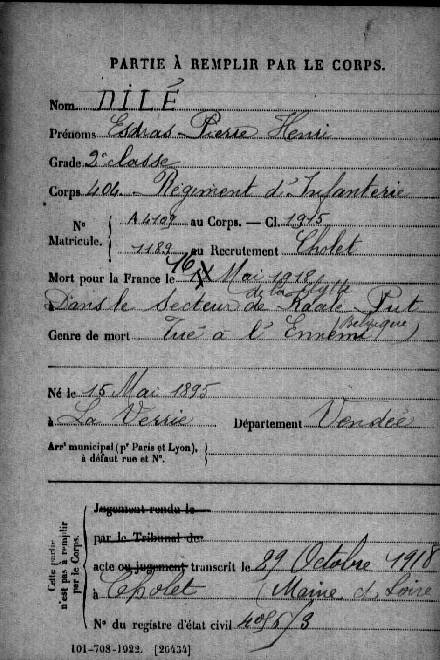 PARTIE À REMPLIR PAR LE CORPS.
Nom DILÉ
Prénoms Esdras Pierre Henri
Grade 2e classe
Corps 404 - Régiment d'Infanterie
No Matricule. A4109 au Corps. — Cl. 1915
1189 au Recrutement Cholet
Mort pour la France le 16 Mai 1918
de la Clytte
Dans le Secteur de Put
(Belgique)
Genre de mort Tué à l'Ennemi
Né le 15 Mai 1895
à La Verrie Département Vendée
Arrt municipal (pr Paris et Lyon),
à défaut rue et No.
Cette partie
n'est pas à remplir
par le Corps.
Jugement rendu le
par le Tribunal de
acte ou jugement transcrit le 29 Octobre 1918
à Cholet (Maine et Loire
No du registre d'état civil
101-708-1922. [26434]